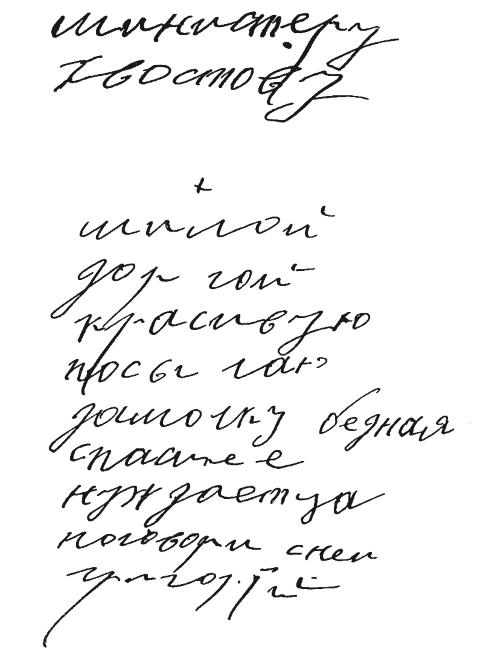 министеру
Хвостову
+
милой
дор гой
красивую
посылаю
дамочку бедная
спаси ее
нуждаетца
поговори сней
григорий